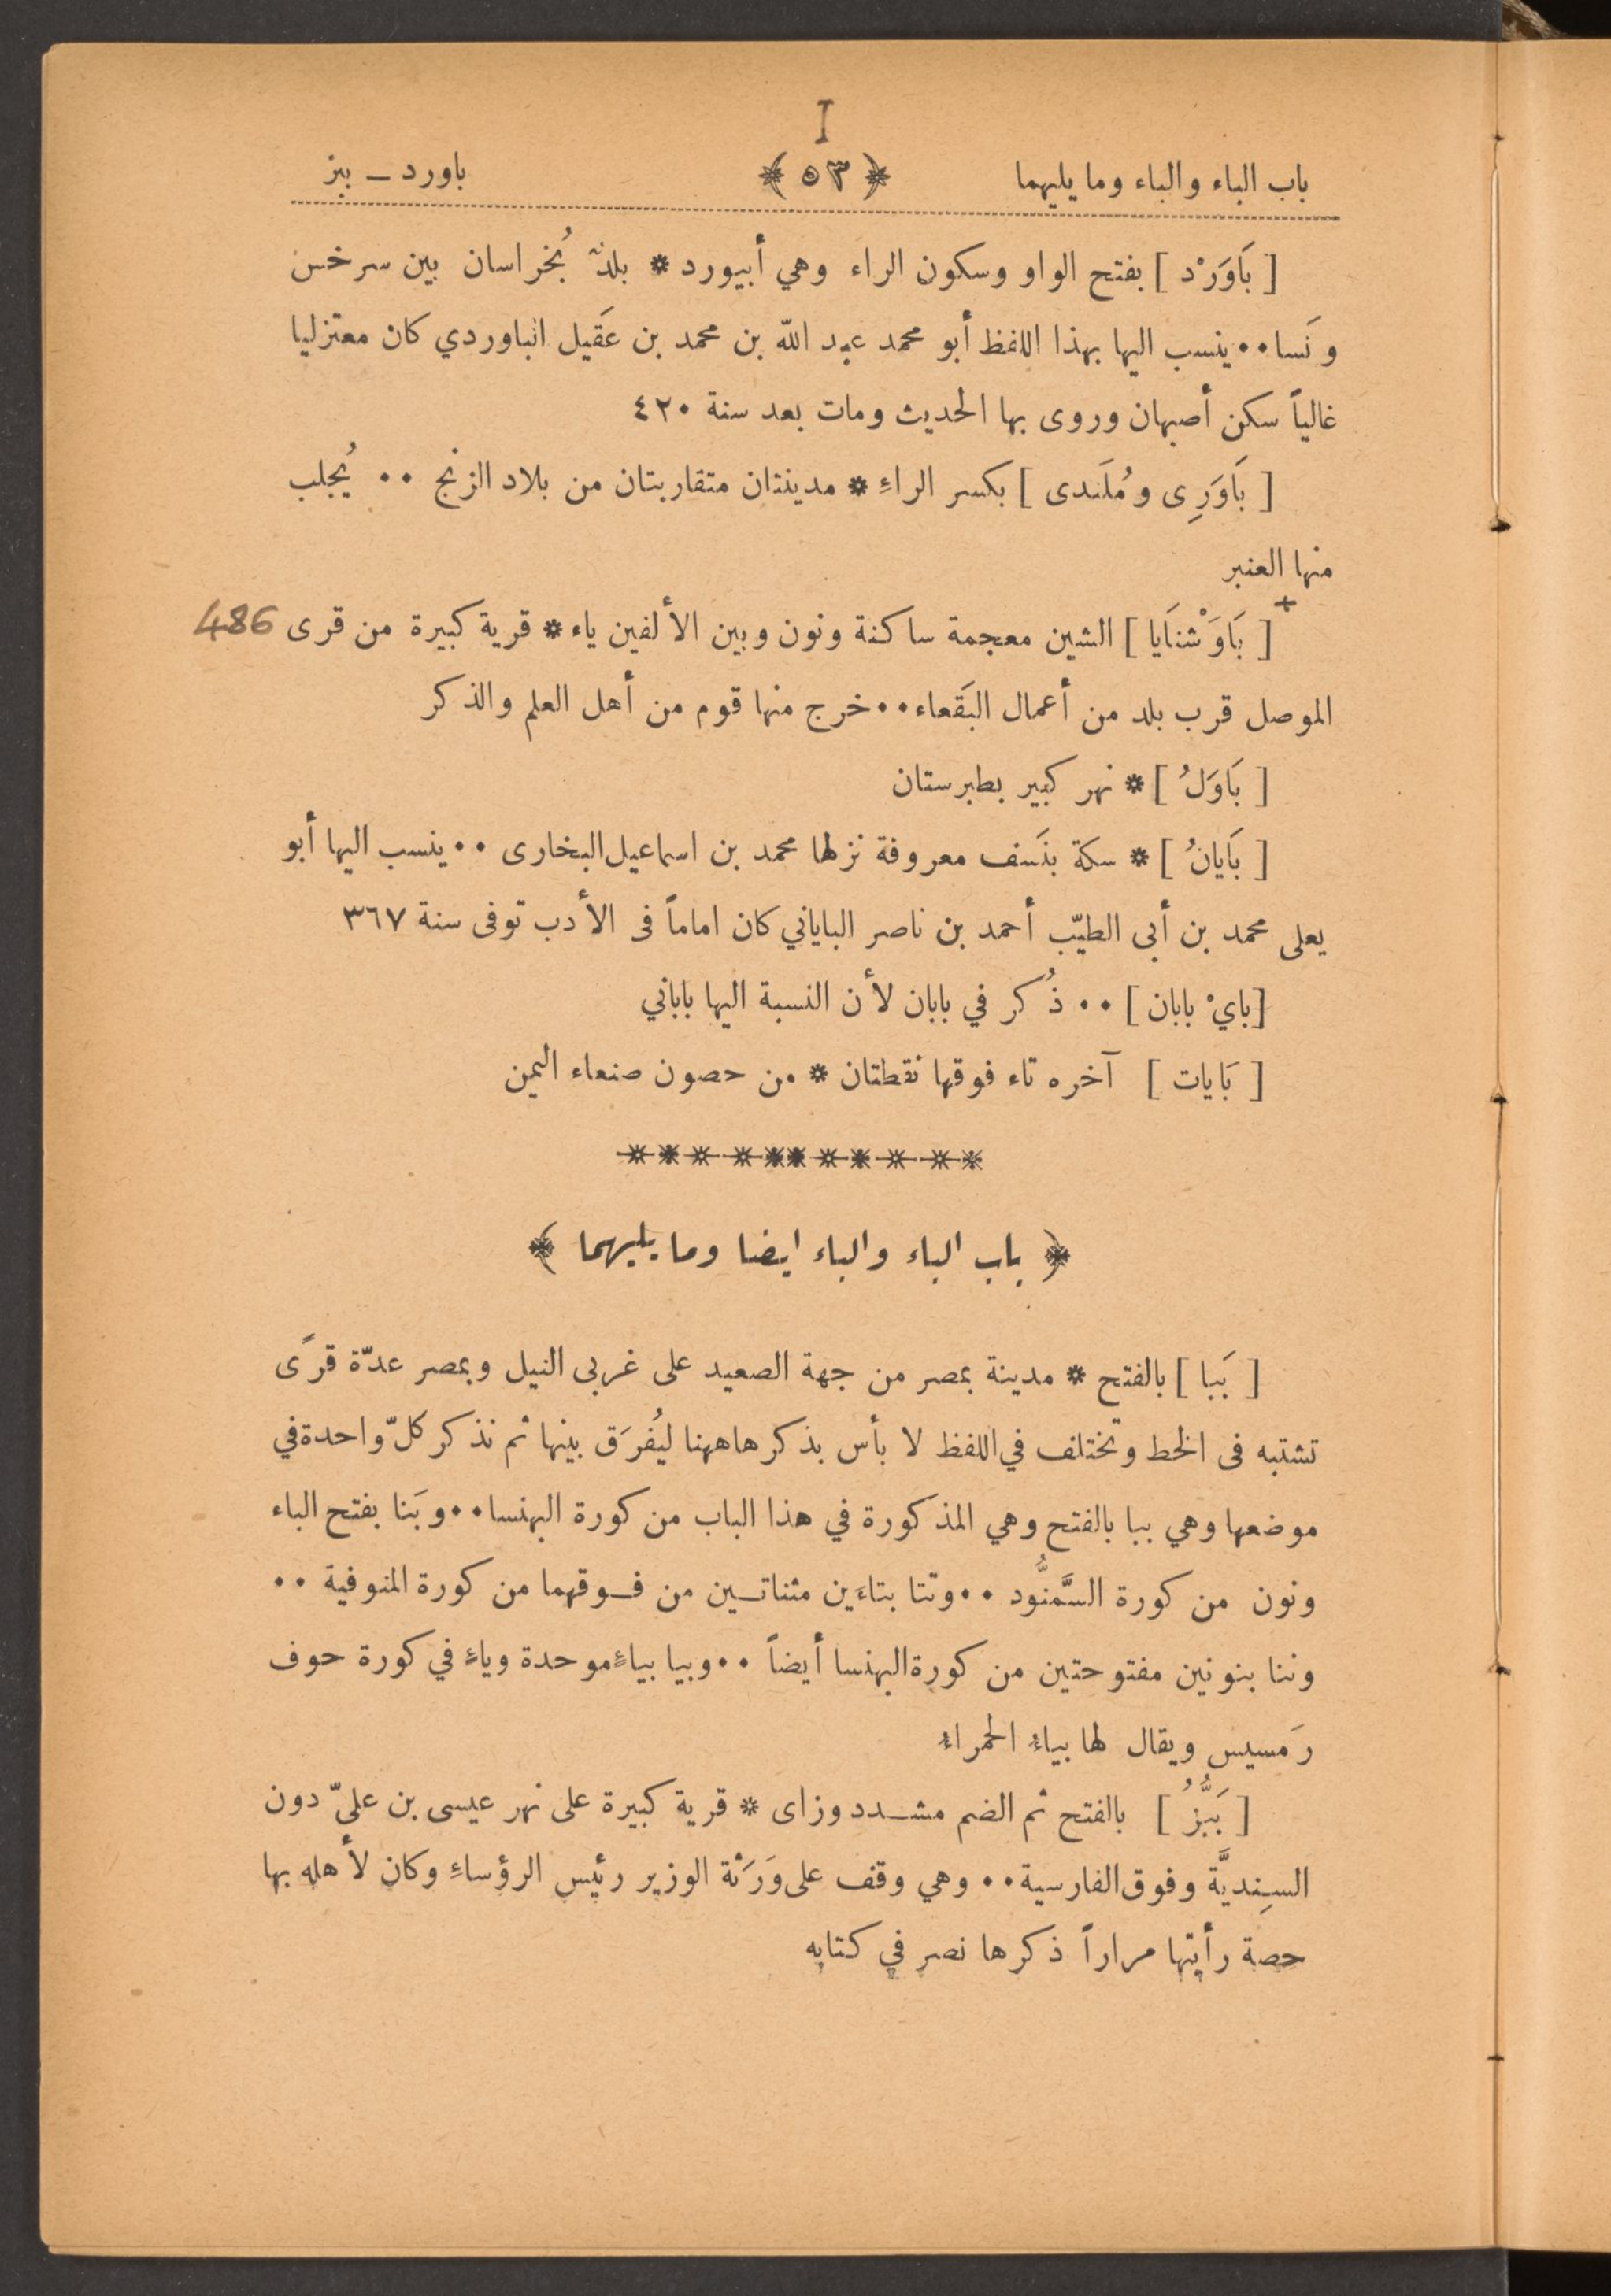 I
باب الباء والباء وما يليهما ﴿ ٥٣ ﴾ باورد ــ ببز
[ بَاوَرْد ] بفتح الواو وسكون الراء وهي أبيورد * بلدٌ بُخراسان بين سرخس
ونَسا ٠٠ ينسب اليها بهذا اللفظ أبو محمد عبد الله بن محمد بن عَقيل الباوردي كان معتزليا
غالياً سكن أصبهان وروى بها الحديث ومات بعد سنة ٤٢٠
[ بَاوَرِى ومُلَندى ] بكسر الراءِ * مدينتان متقاربتان من بلاد الزنج ٠٠ يُجلب
منها العنبر
+
[ بَاوَشْنَايا ] الشين معجمة ساكنة ونون وبين الألفين ياء * قرية كبيرة من قرى 486
الموصل قرب بلد من أعمال البَقعاء ٠٠ خرج منها قوم من أهل العلم والذكر
[ بَاوَلُ ] * نهر كبير بطبرستان
[ بَايانُ ] * سكة بنَسف معروفة نزلها محمد بن اسماعيل البخارى ٠٠ ينسب اليها أبو
يعلى محمد بن أبى الطيّب أحمد بن ناصر الباياني كان اماماً فى الأدب توفى سنة ٣٦٧
[ بايْ بابان ] ٠٠ ذُكر في بابان لأن النسبة اليها باباني
[ بَايات ] آخره تاء فوقها نقطتان * من حصون صنعاء اليمن
﴿ باب الباء والباء ايضا وما يليهما ﴾
[ بَبا ] بالفتح * مدينة بمصر من جهة الصعيد على غربى النيل وبمصر عدّة قرًى
تشتبه فى الخط وتختلف في اللفظ لا بأس بذكرها ههنا ليُفرَق بينها ثم نذكر كلّ واحدة في
موضعها وهي ببا بالفتح وهي المذكورة في هذا الباب من كورة البهنسا ٠٠ وبَنا بفتح الباء
ونون من كورة السَّمنُّود ٠٠ وتتا بتاءَين مثناتــين من فــوقهما من كورة المنوفية ٠٠
وننا بنونين مفتوحتين من كورة البهنسا أيضاً ٠٠ وبيا بياءٍ موحدة وياءٍ في كورة حوف
رَمسيس ويقال لها بياءُ الحمراءُ
[ بَبُّزُ ] بالفتح ثم الضم مشــدد وزاى * قرية كبيرة على نهر عيسى بن علىّ دون
السِنديَّة وفوق الفارسية ٠٠ وهي وقف على وَرَثة الوزير رئيس الرؤساءِ وكان لأهله بها
حصة رأيتها مراراً ذكرها نصر في كتابه